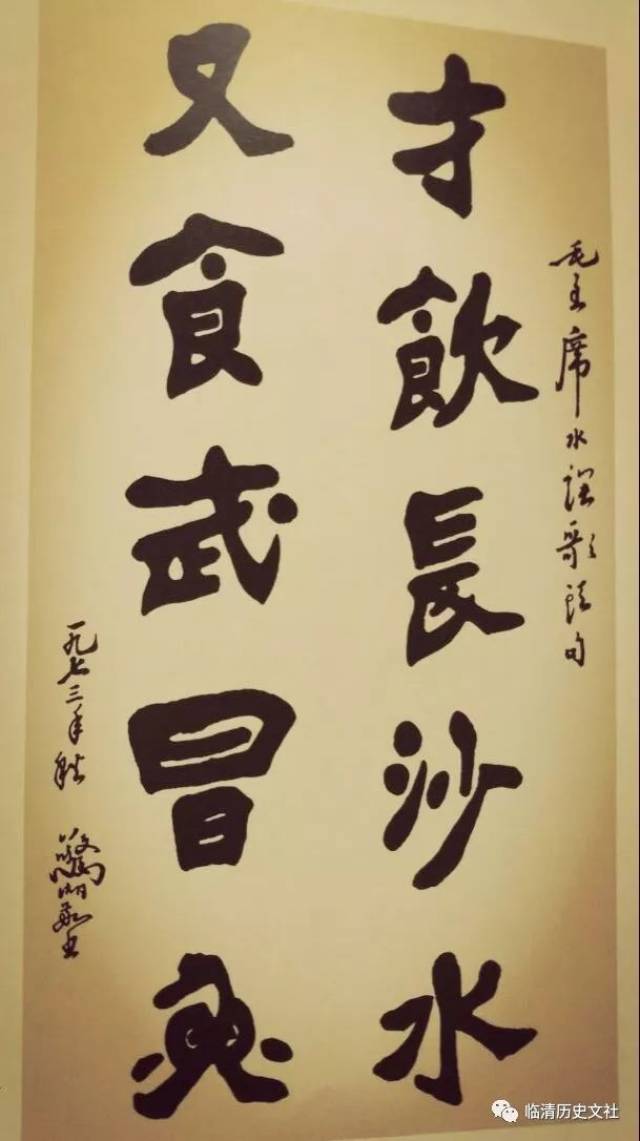 毛主席水調歌
句
才飲長沙水
又食武昌魚
一九七三年秋
临清历史文社